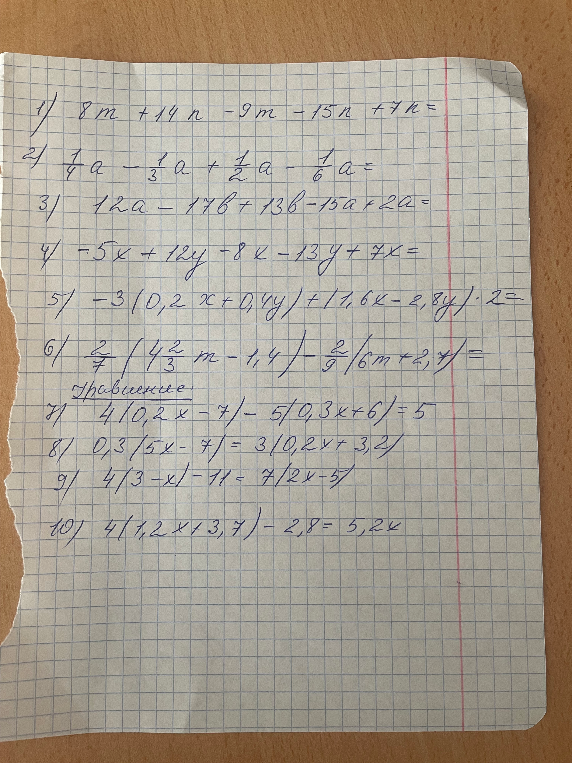 1) 8m + 14n - 9m - 15n + 7n =
2) 1/4 a - 1/3 a + 1/2 a - 1/6 a =
3) 12a - 17b + 13b - 15a + 2a =
4) -5x + 12y - 8x - 13y + 7x =
5) -3(0,2x + 0,4y) + (1,6x - 2,8y) · 2 =
6) 2/7 (4 2/3 m - 1,4) - 2/9 (6m + 2,7) =
Уравнение
7) 4(0,2x - 7) - 5(0,3x + 6) = 5
8) 0,3(5x - 7) = 3(0,2x + 3,2)
9) 4(3 - x) - 11 = 7(2x - 5)
10) 4(1,2x + 3,7) - 2,8 = 5,2x